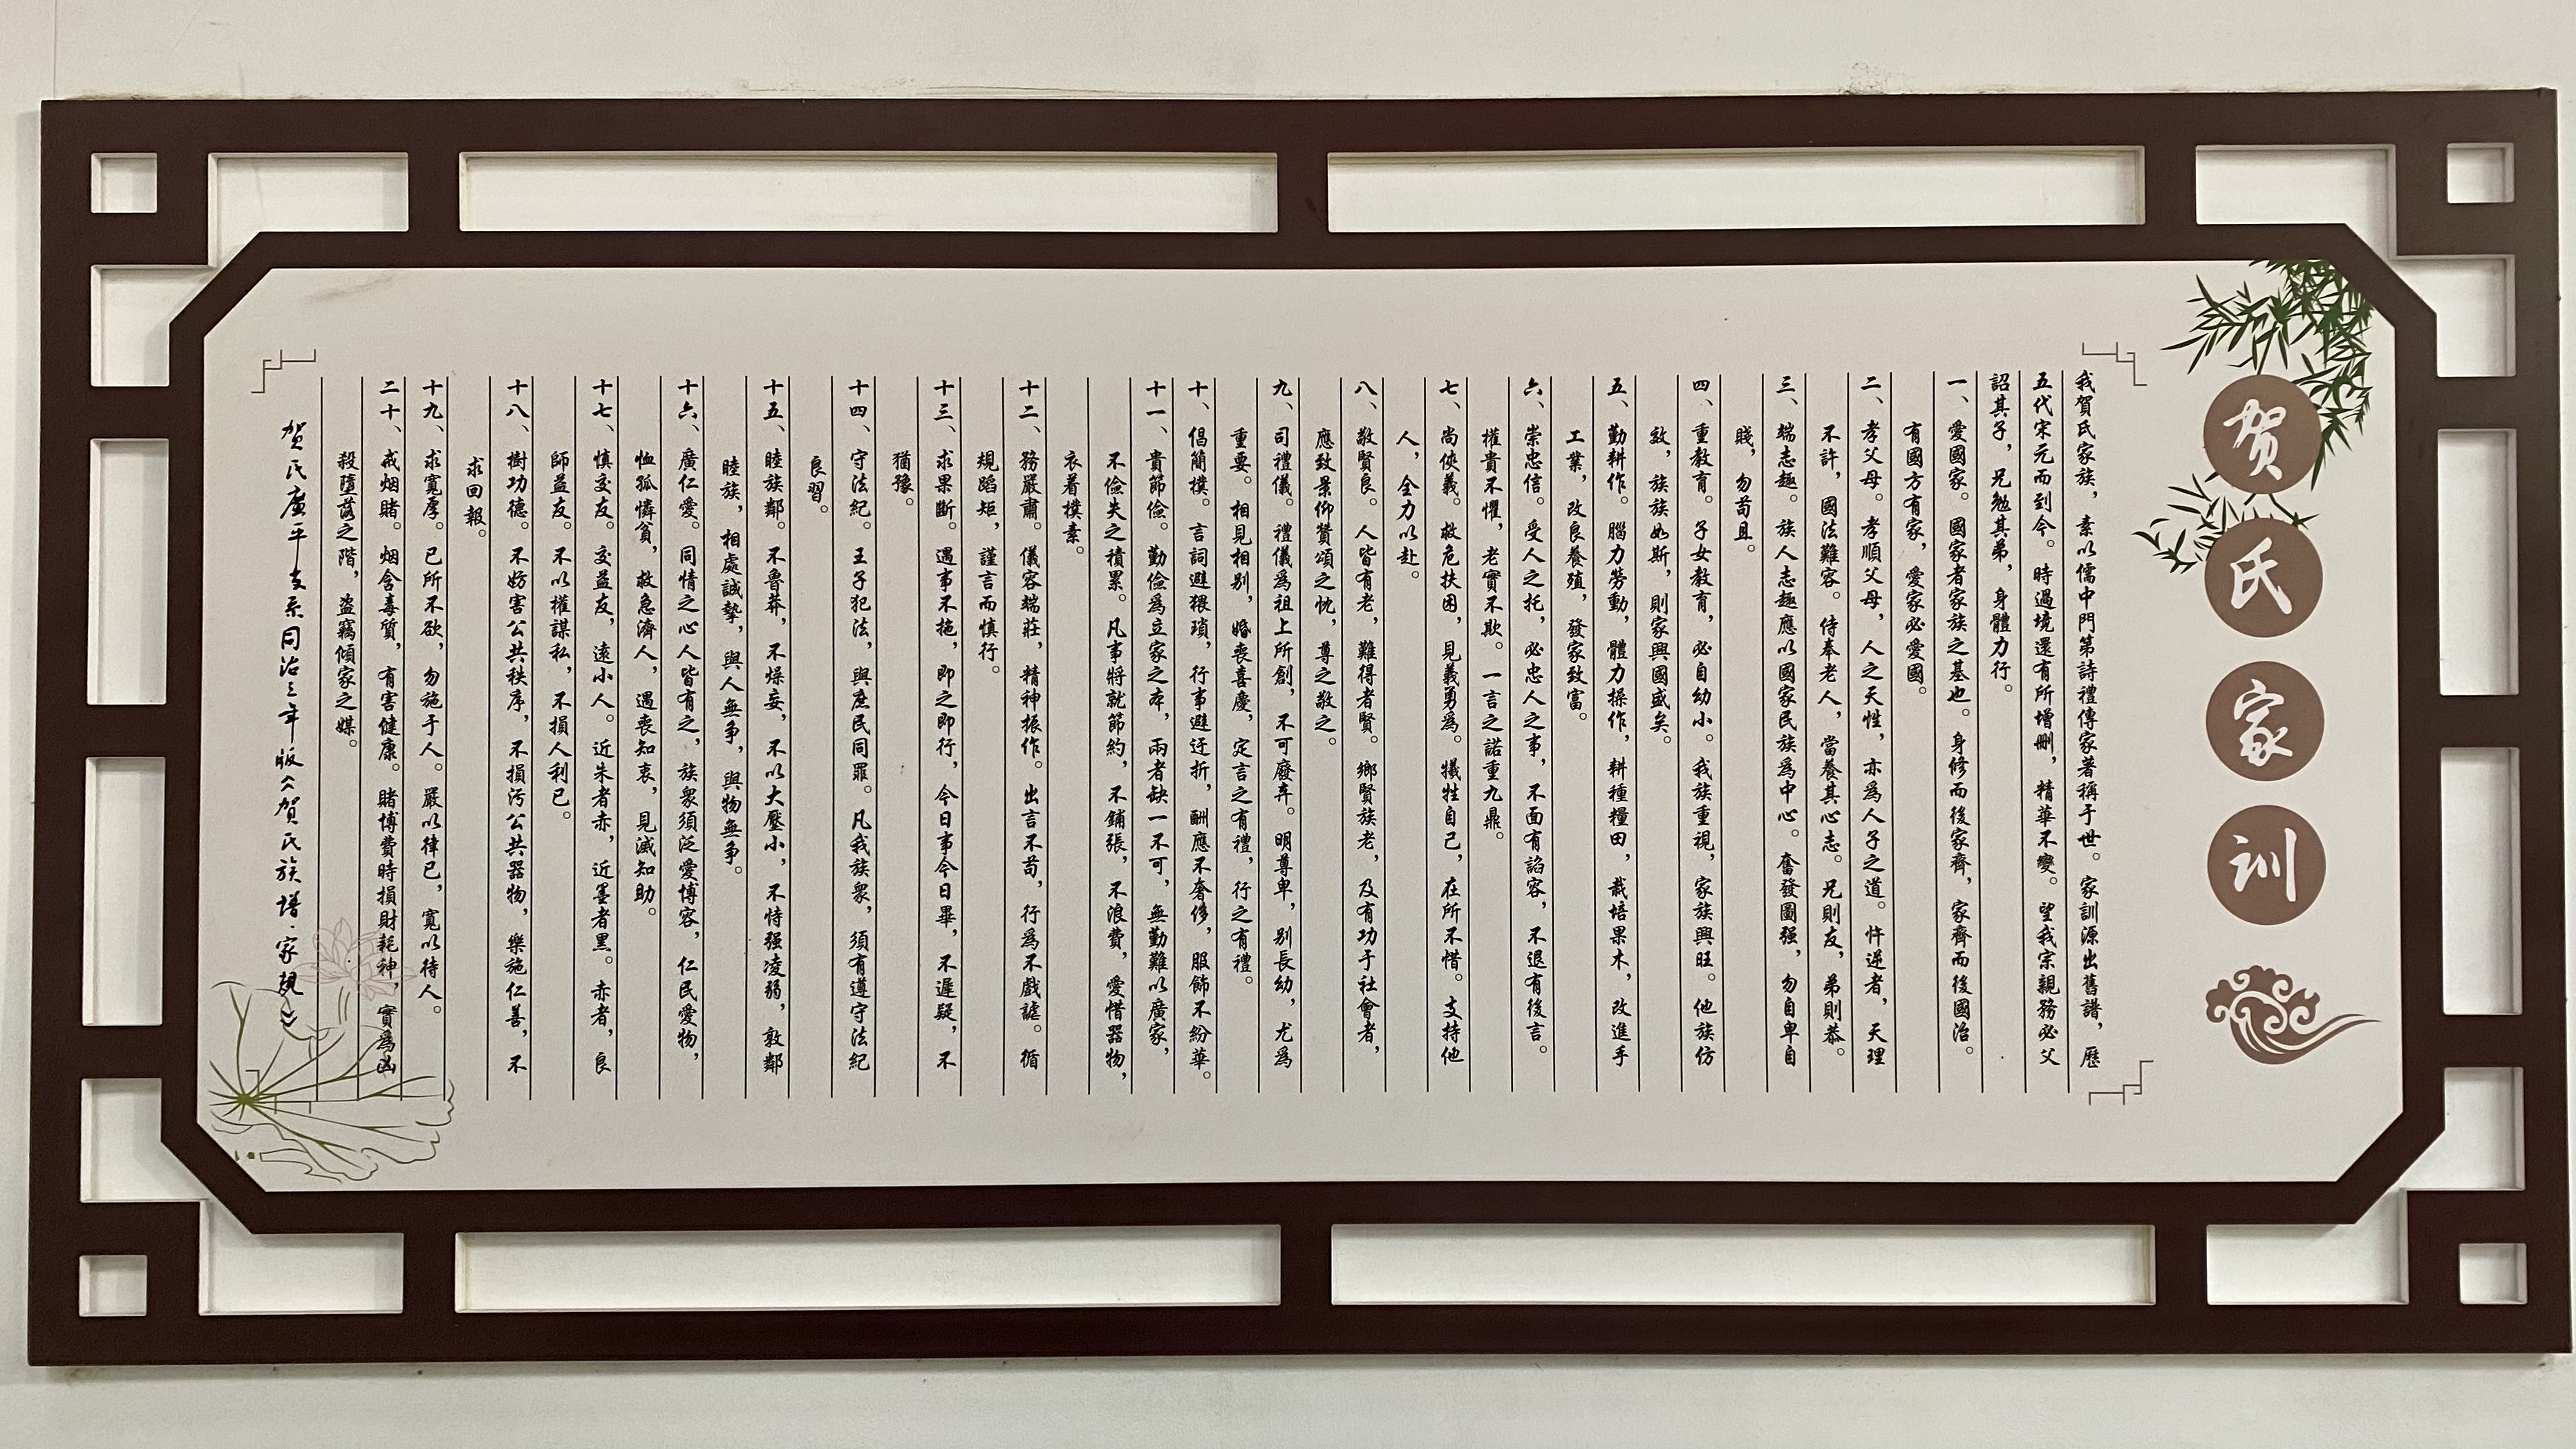 贺氏家训
我賀氏家族，素以儒中門第詩禮傳家著稱于世。家訓源出舊譜，歷
五代宋元而到今。時過境還有所增删，精華不變。望我宗親務必父
詔其子，兄勉其弟，身體力行。
一、愛國家。國家者家族之基也。身修而後家齊，家齊而後國治。
有國方有家，愛家必愛國。
二、孝父母。孝順父母，人之天性，亦爲人子之道。忤逆者，天理
不許，國法難容。侍奉老人，當養其心志。兄則友，弟則恭。
三、端志趣。族人志趣應以國家民族爲中心。奮發圖强，勿自卑自
賤，勿苟且。
四、重教育。子女教育，必自幼小。我族重視，家族興旺。他族仿
效，族族如斯，則家興國盛矣。
五、勤耕作。腦力勞動，體力操作，耕種糧田，栽培果木，改進手
工業，改良養殖，發家致富。
六、崇忠信。受人之托，必忠人之事，不面有諂容，不退有後言。
權貴不懼，老實不欺。一言之諾重九鼎。
七、尚俠義。救危扶困，見義勇爲。犧牲自己，在所不惜。支持他
人，全力以赴。
八、敬賢良。人皆有老，難得者賢。鄉賢族老，及有功于社會者，
應致景仰贊頌之忱，尊之敬之。
九、司禮儀。禮儀爲祖上所創，不可廢弃。明尊卑，别長幼，尤爲
重要。相見相别，婚喪喜慶，定言之有禮，行之有禮。
十、倡簡樸。言詞避猥瑣，行事避迂折，酬應不奢侈，服飾不紛華。
十一、貴節儉。勤儉爲立家之本，兩者缺一不可，無勤難以廣家，
不儉失之積累。凡事將就節約，不鋪張，不浪費，愛惜器物，
衣着樸素。
十二、務嚴肅。儀容端莊，精神振作。出言不苟，行爲不戲謔。循
規蹈矩，謹言而慎行。
十三、求果斷。遇事不拖，即之即行，今日事今日畢，不遲疑，不
猶豫。
十四、守法紀。王子犯法，與庶民同罪。凡我族衆，須有遵守法紀
良習。
十五、睦族鄰。不魯莽，不燥妄，不以大壓小，不恃强凌弱，敦鄰
睦族，相處誠摯，與人無争，與物無争。
十六、廣仁愛。同情之心人皆有之，族衆須泛愛博容，仁民愛物，
恤孤憐貧，救急濟人，遇喪知哀，見滅知助。
十七、慎交友。交益友，遠小人。近朱者赤，近墨者黑。赤者，良
師益友。不以權謀私，不損人利己。
十八、樹功德。不妨害公共秩序，不損污公共器物，樂施仁善，不
求回報。
十九、求寬厚。已所不欲，勿施于人。嚴以律已，寬以待人。
二十、戒烟賭。烟含毒質，有害健康。賭博費時損財耗神，實爲凶
殺墮落之階，盗竊傾家之媒。
贺氏廣平支系同治三年版《賀氏族譜·家規》